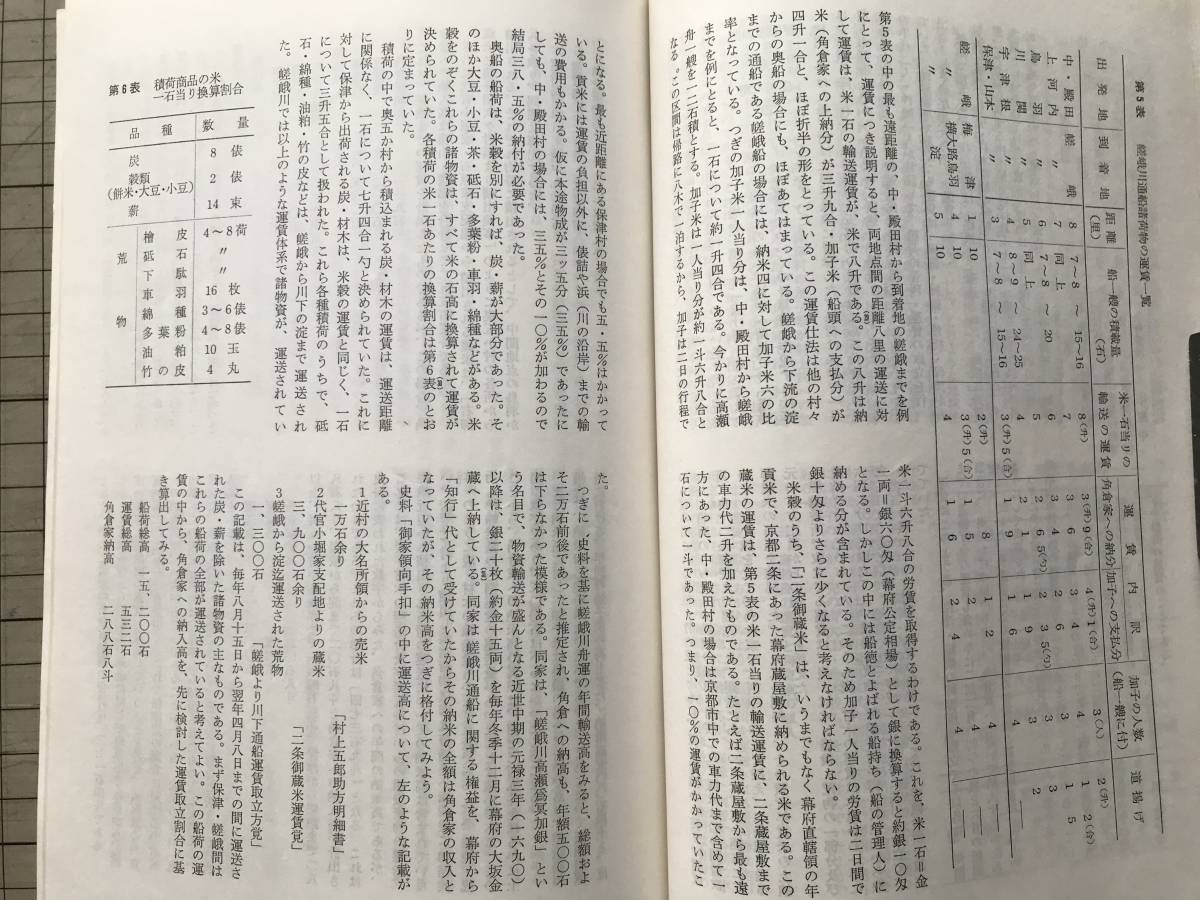 第5表　嵯峨川通船諸荷物の運賃一覧
出発地　到着地　距離(里)　船一艘の積載量(石)　米一石当りの輸送の運賃　運賃内訳　角倉家への納分　加子への支払分　加子の人数(船一艘に付)　道揚げ
中・殿田　嵯峨　8　7～8　～　15～16　8(升)　3(升)9(合)　4(升)1(合)　3(人)
上河内　〃　7　同上　7
鳥羽　〃　6　7～8　～　20　6
川関　〃　5　同上　5
宇津根　〃　4　8～9　～　24～25　4
保津・山本　〃　3　7～8　～　15～16　3(升)5(合)
嵯峨　梅津　1　10　2(升)
〃　横大路鳥羽　4　10　3(升)5(合)
〃　淀　5　10　4
第5表の中の最も遠距離の、中・殿田村から到着地の嵯峨までを例
にとって、運賃につき説明すると、両地点間の距離八里の運送に対
して運賃は、米一石の輸送運賃が、米で八升である。この八升は納
米（角倉家への上納分）が三升九合・加子米（船頭への支払分）が
四升一合と、ほぼ折半の形をとっている。この運賃仕法は他の村々
からの奥船の場合にも、ほぼあてはまっている。嵯峨から下流の淀
までの通船である嵯峨船の場合には、納米四に対して加子米六の比
率となっている。つぎの加子米一人当り分は、中・殿田村から嵯峨
までを例にとると、一石について約一升四合である。今かりに高瀬
舟一艘を一二石積とする。加子米は一人当り分が約一斗六升八合と
なる。この区間は帰路に八木で一泊するから、加子は二日の行程で
米一斗六升八合の労賃を取得するわけである。これを、米一石＝金
一両＝銀六〇匁（幕府公定相場）として銀に換算すると約銀一〇匁
となる。しかしこの中には船徳とよばれる船持ち（船の管理人）に
納める分が含まれている。そのため加子一人当りの労賃は二日間で
銀十匁よりさらに少くなると考えなければならない。
米穀のうち、「二条御蔵米」は、いうまでもなく幕府直轄領の年
貢米で、京都二条にあった幕府蔵屋敷に納められる米である。この
蔵米の運賃は、第5表の米一石当りの輸送運賃に、二条蔵屋敷まで
の車力代二升を加えたものである。たとえば二条蔵屋敷から最も遠
方にあった、中・殿田村の場合は京都市中での車力代まで含めて一
石について一斗であった。つまり、一〇％の運賃がかかっていたこ
とになる。最も近距離にある保津村の場合でも五・五％はかかって
いる。貢米には運賃の負担以外に、俵詰や浜（川の沿岸）までの輸
送の費用もかかる。仮に本途物成が三ッ五分（三五％）であったに
しても、中・殿田村の場合には、三五％とその一〇％が加わるので
結局三八・五％の納付が必要であった。
奥船の船荷は、米穀を別にすれば、炭・薪が大部分であった。そ
のほか大豆・小豆・茶・砥石・多葉粉・車羽・綿種などがある。米
穀をのぞくこれらの諸物資は、すべて米の石高に換算されて運賃が
決められていた。各積荷の米一石あたりの換算割合は第6表のとお
りに定まっていた。
積荷の中で奥五か村から積込まれる炭・材木の運賃は、運送距離
に関係なく、一石について七升四合一勺と決められていた。これに
対して保津から出荷される炭・材木は、米穀の運賃と同じく、一石
について三升五合として扱われた。これら各種積荷のうちで、砥
石・綿種・油粕・竹の皮などは、嵯峨から川下の淀まで運送され
た。嵯峨川では以上のような運賃体系で諸物資が、運送されてい
第6表　積荷商品の米一石当り換算割合
品種　数量
炭　8俵
穀類(餅米・大豆・小豆)　2俵
薪　14束
荒物
檜皮　4～8荷
砥石　〃
下駄　〃
車羽　16枚
綿種　3～6俵
多葉粉　4～8俵
油粕　10玉
竹の皮　4丸
た。
つぎに、史料を基に嵯峨川舟運の年間輸送高をみると、総額およ
そ二万石前後であったと推定され、角倉への納高も、年額五〇〇石
は下らなかった模様である。同家は、「嵯峨川高瀬爲冥加銀」とい
う名目で、物資輸送が盛んとなる近世中期の元禄三年（一六九〇）
以降は、銀二十枚（約金十五両）を毎年冬季十二月に幕府の大坂金
蔵へ上納している。同家は嵯峨川通船に関する権益を、幕府から
「知行」代として受けていたからその納米の全額は角倉家の収入と
なっていたが、その納米高をつぎに格付してみよう。
史料「御家領向手扣」の中に運送高について、左のような記載が
ある。
1近村の大名所領からの売米
一万石余り　「村上五郎助方明細書」
2代官小堀家支配地よりの蔵米
三、九〇〇石余り　「二条御蔵米運賃覚」
3嵯峨から淀迄運送された荒物
一、三〇〇石　「嵯峨より川下通船運賃取立方覚」
この記載は、毎年八月十五日から翌年四月八日までの間に運送さ
れた炭・薪を除いた諸物資の主なものである。まず保津・嵯峨間は
これらの船荷の全部が運送されていると考えてよい。この船荷の運
賃の中から、角倉家への納入高を、先に検討した運賃取立割合に基
き算出してみる。
船荷総高　一五、二〇〇石
運賃総高　五三二石
角倉家納高　二八八石八斗